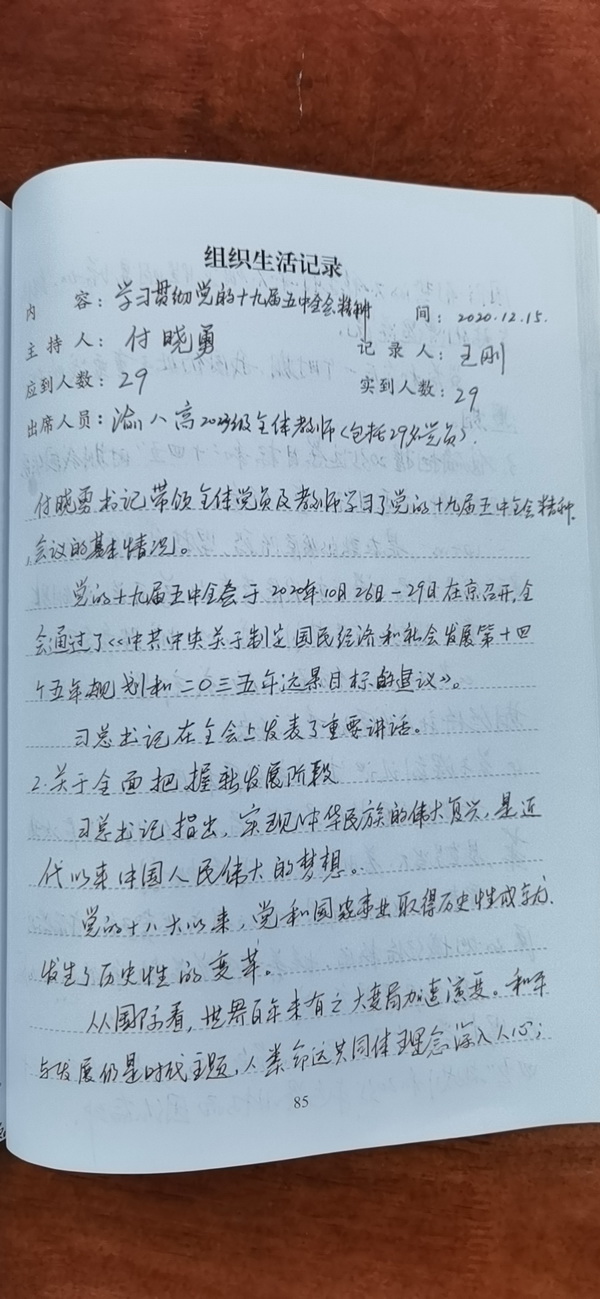 组织生活记录
内 容：学习贯彻党的十九届五中全会精神 间：2020.12.15.
主持人：付晓勇 记录人：王刚
应到人数：29 实到人数：29
出席人员：渝八高2023级全体教师（包括29名党员）.
付晓勇书记带领全体党员及教师学习了党的十九届五中全会精神.
会议的基本情况。
党的十九届五中全会于2020年10月26日-29日在京召开,全
会通过了《中共中央关于制定国民经济和社会发展第十四
个五年规划和二〇三五年远景目标的建议》。
习总书记在全会上发表了重要讲话。
2.关于全面把握新发展阶段
习总书记指出，实现中华民族的伟大复兴，是近
代以来中国人民伟大的梦想。
党的十八大以来，党和国家事业取得历史性成就.
发生了历史性的变革。
从国际看，世界百年未有之大变局加速演变。和平
与发展仍是时代主题，人类命运共同体理念深入人心；
85